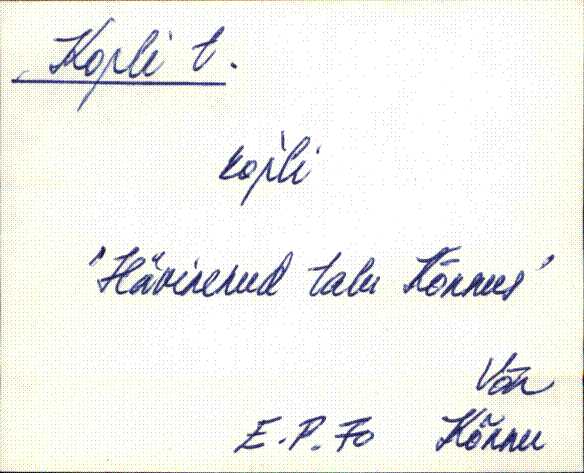 Kopli t.
kop̀li
'Hävinenud talu Kõnnus'
Võn
E.P. 70 Kõnnu